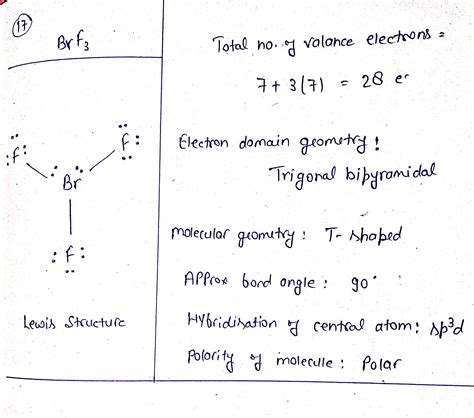 17
BrF3
Total no. of valance electrons =
7 + 3(7) = 28 er
:F: F:
Br
:F:
Lewis Structure
Electron domain geometry:
Trigonal bipyramidal
Molecular geometry: T-shaped
Approx bond angle: 90°
Hybridisation of central atom: sp³d
Polarity of molecule: Polar